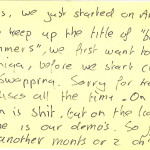 s, we just started on
keep up the title of
mmers", we first want to
before we start
Sorry for
iscs all the time. On
n is shit, but on the
e is our demo's. So
another month or 2